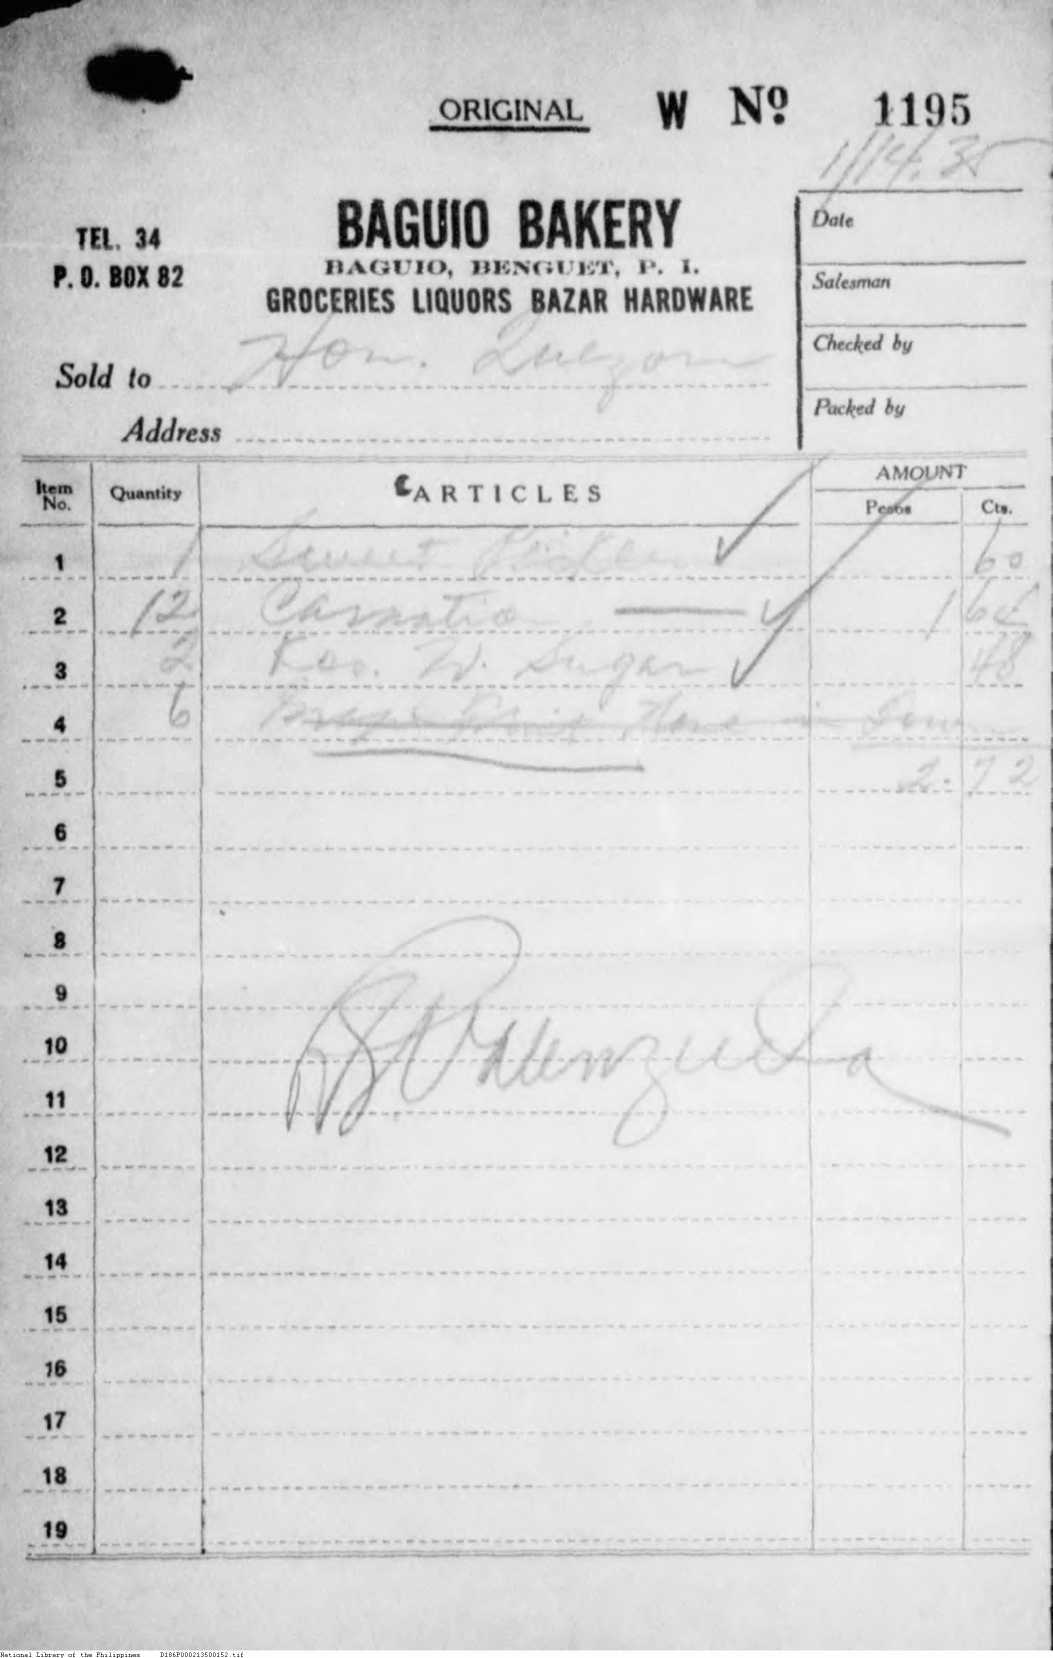 ORIGINAL W Nº 1195
1/14.35
TEL. 34
P. O. BOX 82
BAGUIO BAKERY
BAGUIO, BENGUET, P. I.
GROCERIES LIQUORS BAZAR HARDWARE
Date
Salesman
Checked by
Packed by
Sold to Hon. Quezon
Address
Item No. Quantity ARTICLES AMOUNT Pesos Cts.
1 1 Sweet 60
2 12 Carnatio 1 64
3 2 Kos. W. Sugar 48
4 6 None in Town
5 2.72
6
7
8
9
10
11
12
13
14
15
16
17
18
19
National Library of the Philippines D186P000213500152.tif